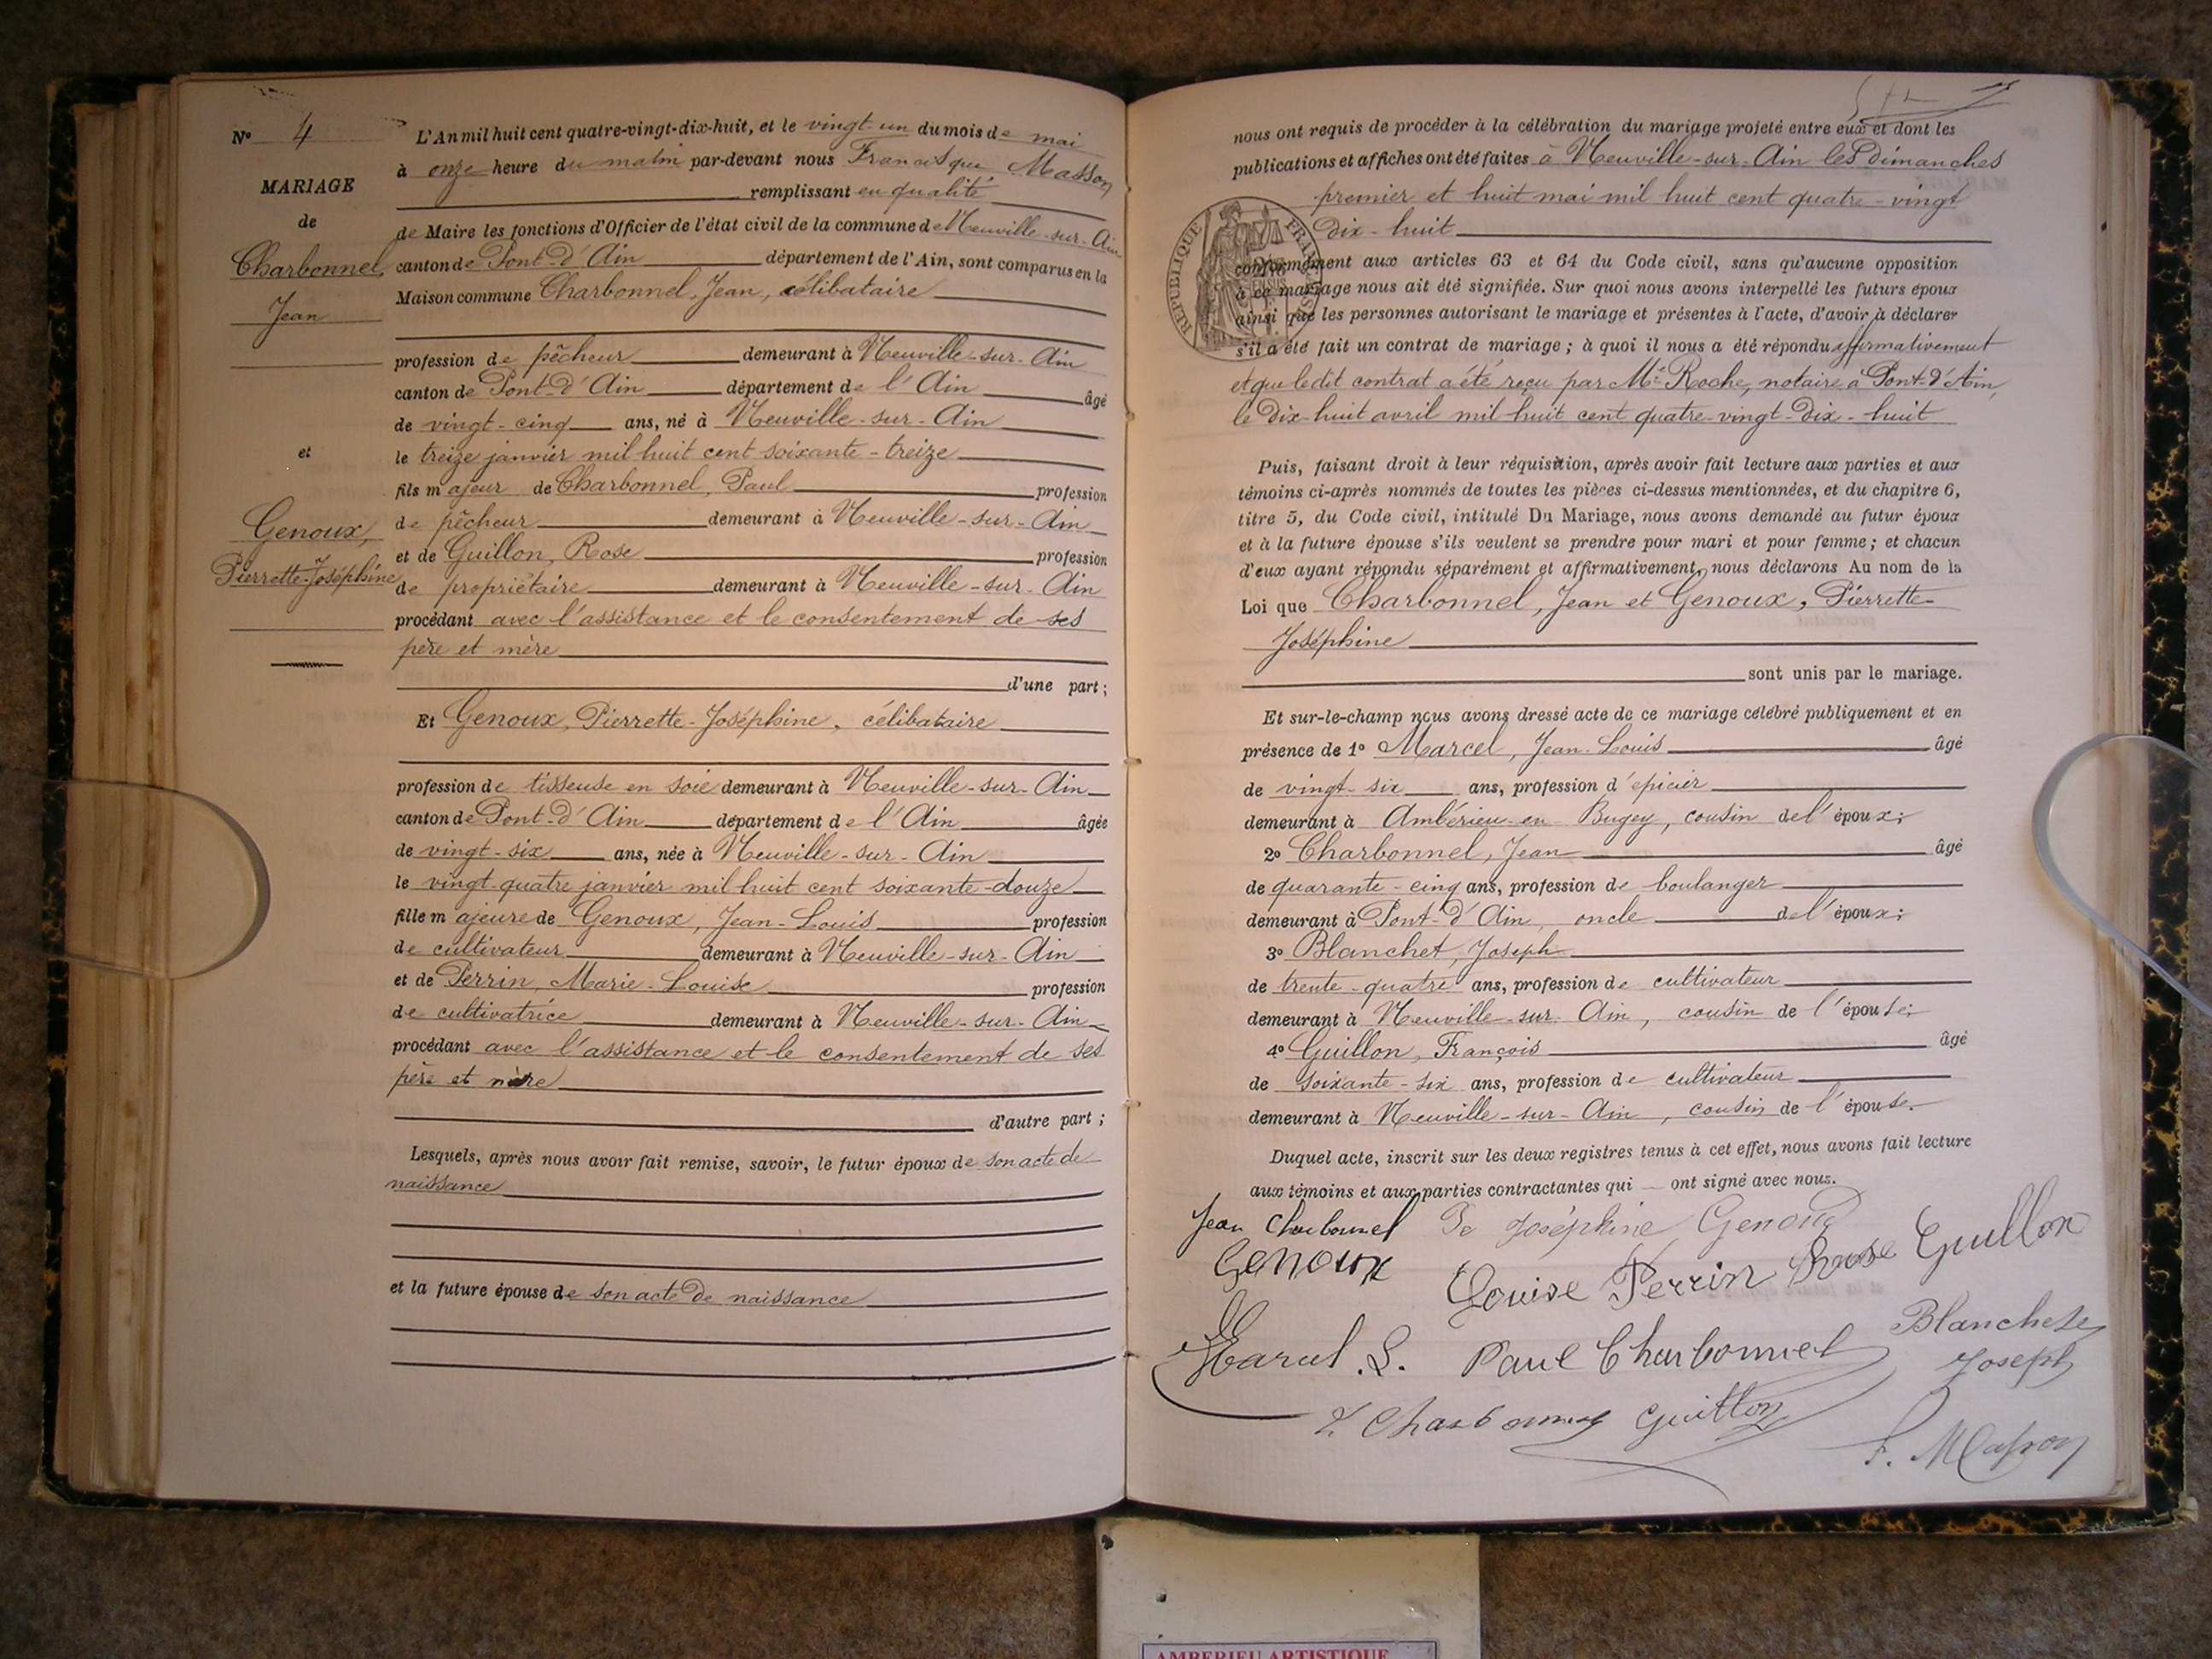 N° 4
MARIAGE
de
Charbonnel,
Jean
et
Genoux,
Pierrette-Joséphine
L'An mil huit cent quatre-vingt-dix-huit, et le vingt-un du mois de mai
à onze heure du matin par-devant nous Francisque Masson
remplissant en qualité
de Maire les fonctions d'Officier de l'état civil de la commune de Neuville-sur-Ain
canton de Pont-d'Ain département de l'Ain, sont comparus en la
Maison commune Charbonnel, Jean, célibataire
profession de pêcheur demeurant à Neuville-sur-Ain
canton de Pont-d'Ain département de l'Ain âgé
de vingt-cinq ans, né à Neuville-sur-Ain
le treize janvier mil huit cent soixante-treize
fils majeur de Charbonnel, Paul profession
de pêcheur demeurant à Neuville-sur-Ain
et de Guillon, Rose profession
de propriétaire demeurant à Neuville-sur-Ain
procédant avec l'assistance et le consentement de ses
père et mère
d'une part;
Et Genoux, Pierrette-Joséphine, célibataire
profession de tisseuse en soie demeurant à Neuville-sur-Ain
canton de Pont-d'Ain département de l'Ain âgée
de vingt-six ans, née à Neuville-sur-Ain
le vingt-quatre janvier mil huit cent soixante-douze
fille majeure de Genoux, Jean-Louis profession
de cultivateur demeurant à Neuville-sur-Ain
et de Perrin, Marie-Louise profession
de cultivatrice demeurant à Neuville-sur-Ain
procédant avec l'assistance et le consentement de ses
père et mère
d'autre part;
Lesquels, après nous avoir fait remise, savoir, le futur époux de son acte de
naissance
et la future épouse de son acte de naissance
nous ont requis de procéder à la célébration du mariage projeté entre eux et dont les
publications et affiches ont été faites à Neuville-sur-Ain les dimanches
premier et huit mai mil huit cent quatre-vingt
dix-huit
RÉPUBLIQUE FRANÇAISE
conformément aux articles 63 et 64 du Code civil, sans qu'aucune opposition
à ce mariage nous ait été signifiée. Sur quoi nous avons interpellé les futurs époux
ainsi que les personnes autorisant le mariage et présentes à l'acte, d'avoir à déclarer
s'il a été fait un contrat de mariage; à quoi il nous a été répondu affirmativement
et que ledit contrat a été reçu par Me Roche, notaire à Pont-d'Ain,
le dix-huit avril mil huit cent quatre-vingt-dix-huit
Puis, faisant droit à leur réquisition, après avoir fait lecture aux parties et aux
témoins ci-après nommés de toutes les pièces ci-dessus mentionnées, et du chapitre 6,
titre 5, du Code civil, intitulé Du Mariage, nous avons demandé au futur époux
et à la future épouse s'ils veulent se prendre pour mari et pour femme; et chacun
d'eux ayant répondu séparément et affirmativement, nous déclarons Au nom de la
Loi que Charbonnel, Jean et Genoux, Pierrette-
Joséphine
sont unis par le mariage.
Et sur-le-champ nous avons dressé acte de ce mariage célébré publiquement et en
présence de 1° Marcel, Jean-Louis âgé
de vingt-six ans, profession d'épicier
demeurant à Ambérieu-en-Bugey, cousin de l'époux;
2° Charbonnel, Jean âgé
de quarante-cinq ans, profession de boulanger
demeurant à Pont-d'Ain, oncle de l'époux;
3° Blanchet, Joseph
de trente-quatre ans, profession de cultivateur
demeurant à Neuville-sur-Ain, cousin de l'épouse;
4° Guillon, François âgé
de soixante-six ans, profession de cultivateur
demeurant à Neuville-sur-Ain, cousin de l'épouse.
Duquel acte, inscrit sur les deux registres tenus à cet effet, nous avons fait lecture
aux témoins et aux parties contractantes qui ont signé avec nous.
Jean Charbonnel Joséphine Genoux
Genoux Louise Perrin Rose Guillon
Marcel .L. Paul Charbonnel Blanchet
Joseph
Charbonnel Guillon
F. Masson
AMBERIEU ARTISTIQUE